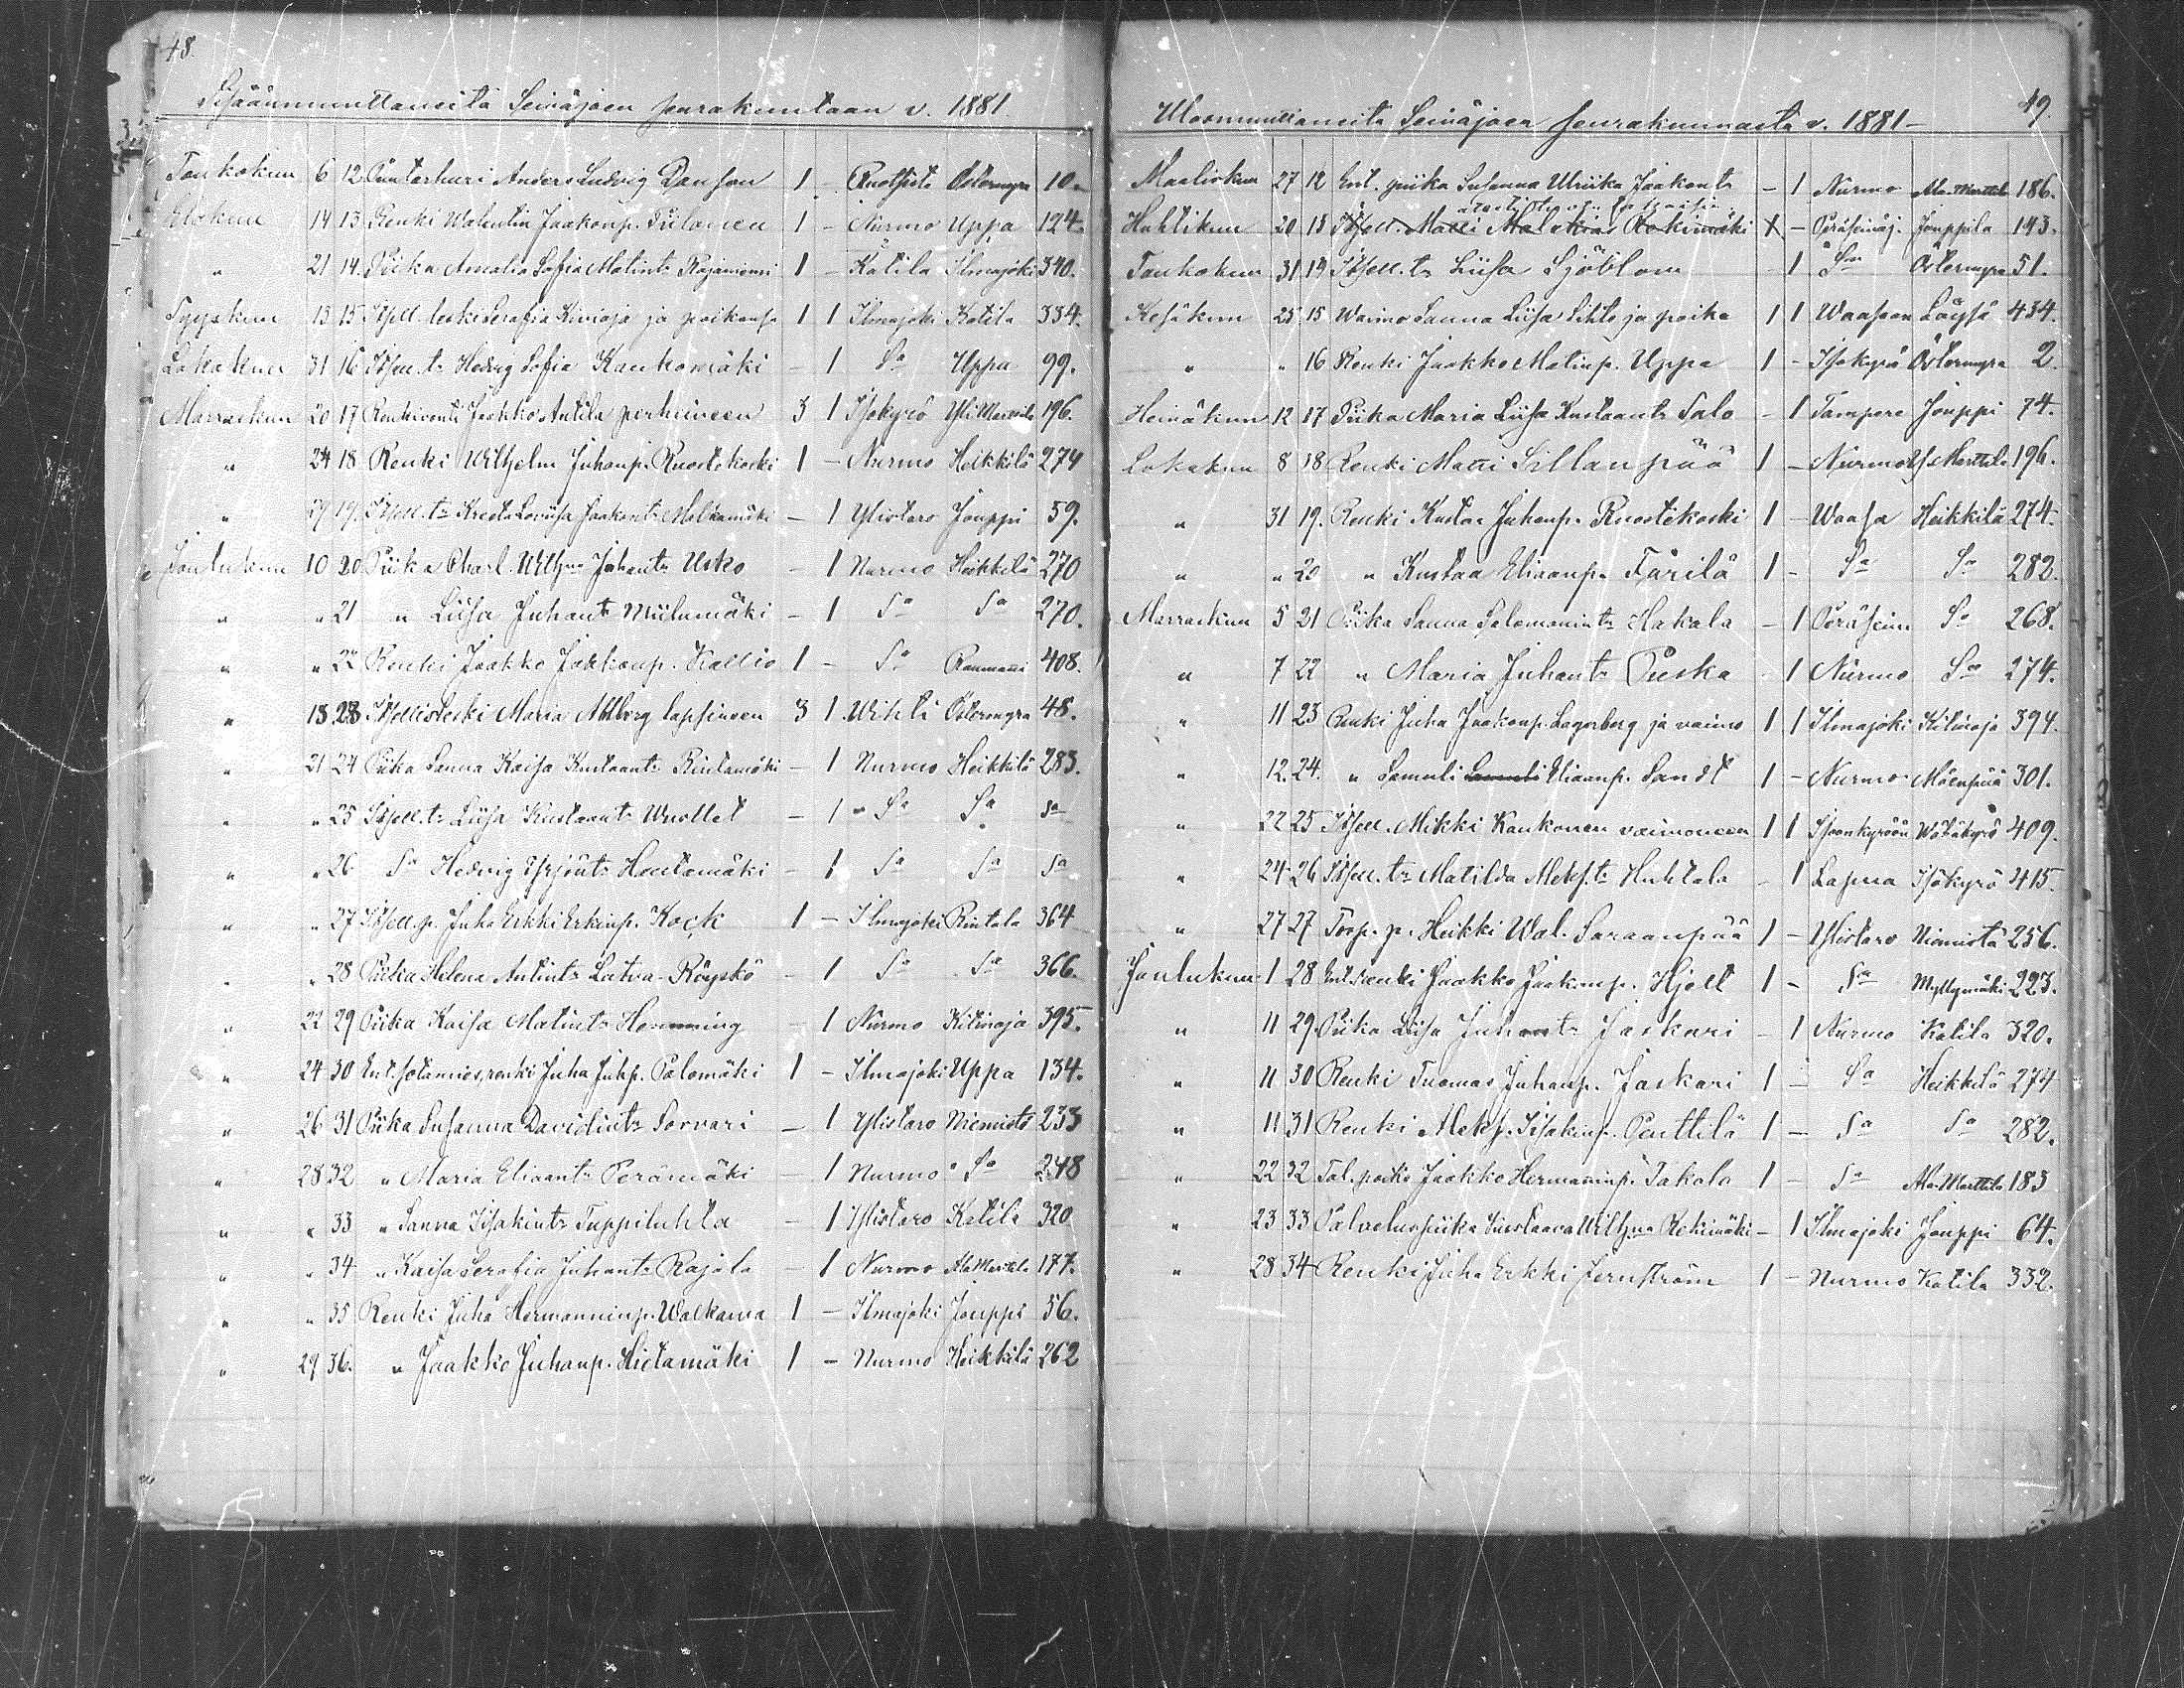 48.
Sisäänmuuttaneita Seinäjoen seurakuntaan v. 1881.
Toukokuu 6 12 Puutarhuri Anders Ludvig Danson 1 - Ruotsista Östermyra 10.
Elokuu 14 13 Renki Walentin Jaakonp. 1 - Nurmo Uppa 124.
" 21 14. Piika Amalia Sofia Matint. Rajaniemi 1 - Katila Ilmajoki 340.
Syyskuu 13 15 Itsell. leski Serafia Kivioja ja poikansa 1 1 Ilmajoki Katila 334.
Lokakuu 31 16 Itsell. tr Hedvig Sofia Kaukomäki - 1 Sa Uppa 99.
Marraskuu 20 17 Renkivouti Jaakko Antila perheineen 3 1 Isokyrö Yli Marttila 196.
" 24 18 Renki Wilhelm Juhanp. Ruostekoski 1 - Nurmo Heikkilä 274
" 29 19. Itsell. tr Kreeta Lovisa Jaakont. - 1 Ylistaro Jouppi 59.
Joulukuu 10 20 Piika Charl. Wilhna Juhant. Usko - 1 Nurmo Heikkilä 270
" " 21 " Liisa Juhant. Miilumäki - 1 Sa Sa 270.
" " 22 Renki Jaakko Jaakkonp. Kallio 1 - Sa Raumanni 408.
" 13 23 Itsellisleski Maria Ahlberg lapsineen 3 1 Wihti Östermyra 48.
" 21 24 Piika Sanna Kaisa Kustaant. Rintamäki - 1 Nurmo Heikkilä 283.
" " 25 Itsell. tr Liisa Kustaant. Wuollet - 1 Sa Sa Sa
" " 26 Sa Hedvig Yrjönt. Hautamäki - 1 Sa Sa Sa
" " 27 Itsell. p. Juha Erkki Erkinp. Kock 1 - Ilmajoki Rintala 364
" " 28 Piika Helena Antint. Latva-Röyskö - 1 Sa Sa 366.
" 22 29 Piika Kaisa Matint. Hemming - 1 Nurmo Kitinoja 395.
" 24 30 Ent. sotamies, renki Juha Juhp. Palomäki 1 - Ilmajoki Uppa 134.
" 26 31 Piika Susanna Davidint. Sorvari - 1 Ylistaro Niemistö 233
" 28 32 " Maria Eliaant. Perämäki - 1 Nurmo Sa 248
" " 33 " Sanna Iisakint. Tuppiluhta - 1 Ylistaro Katila 320
" " 34 " Kaisa Serafia Juhant. Rajala - 1 Nurmo Ala Marttila 177.
" " 35 Renki Juha Hermanninp. Walkama 1 - Ilmajoki Jouppi 56.
" 29 36. " Jaakko Juhanp. Hietamäki 1 - Nurmo Heikkilä 262
49.
Ulosmuuttaneita Seinäjoen seurakunnasta v. 1881-
Maaliskuu 27 12 Ent. piika Susanna Ulriika Jaakont. - 1 Nurmo Ala-Marttila 186.
Huhtikuu 20 13 Itsell. Matti Rekimäki X - Peräseinäj. Jouppila 143.
Toukokuu 31 14 Itsell. tr Liisa Sjöblom - 1 Sa Östermyra 51.
Kesäkuu 25 15 Waimo Sanna Liisa Lihto ja poika 1 1 Waasaan Löysä 434.
" " 16 Renki Jaakko Matinp. Uppa 1 - Isokyrö Östermyra 2.
Heinäkuu 12 17 Piika Maria Liisa Kustaant. Salo - 1 Tampere Jouppi 74.
Lokakuu 8 18 Renki Matti Sillanpää 1 - Nurmo Yli Marttila 196.
" 31 19. Renki Kustaa Juhanp. Ruostekoski 1 - Waasa Heikkilä 274.
" " 20 " Kustaa Eliaanp. Färilä 1 - Sa Sa 282.
Marraskuu 5 21 Piika Sanna Salomonint. Hakala - 1 Peräsein Sa 268.
" 7 22 " Maria Juhant. Piiska - 1 Nurmo Sa 274.
" 11 23 Renki Juha Jaakonp. Lagerberg ja vaimo 1 1 Ilmajoki Kitinoja 394.
" 12. 24. " Samuli Samuli Eliaanp. Sandt 1 - Nurmo Mäenpää 301.
" 22 25 Itsell. Mikki Kaukonen vaimoneen 1 1 Isoonkyröön Wähäkyrö 409.
" 24 26 Itsell. tr Matilda Aleks. tr Huhtala - 1 Lapua Isokyrö 415.
" 27 27 Torp. p. Heikki Wal. Saraanpää 1 - Ylistaro Niemistö 256.
Joulukuu 1 28 Ent. renki Jaakko Jaakonp. Hjelt 1 - Sa Myllymäki 223.
" 11 29. Piika Liisa Juhant. Jaskari - 1 Nurmo Katila 320.
" 11 30 Renki Tuomas Juhanp. Jaskari 1 - Sa Heikkilä 274
" 11 31 Renki Aleks. Iisakinp. Penttilä 1 - Sa Sa 282.
" 22 32 Tal. poika Jaakko Hermanninp. Takala 1 - Sa Ala-Marttila 183
" 23 33 Palveluspiika Kustaava Wilhna Rekimäki - 1 Ilmajoki Jouppi 64.
" 28 34 Renki Juha Erkki Jernström 1 - Nurmo Katila 332.